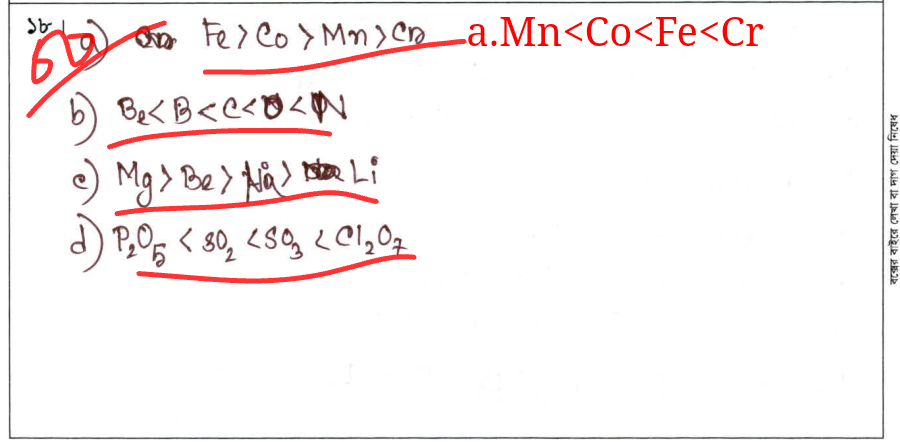 ১৮।
a) Fe > Co > Mn > Cr a.Mn<Co<Fe<Cr
b) Be < B < C < O < N
c) Mg > Be > Na > Li
d) P₂O₅ < SO₂ < SO₃ < Cl₂O₇
বক্সের বাইরে লেখা বা দাগ দেয়া নিষেধ